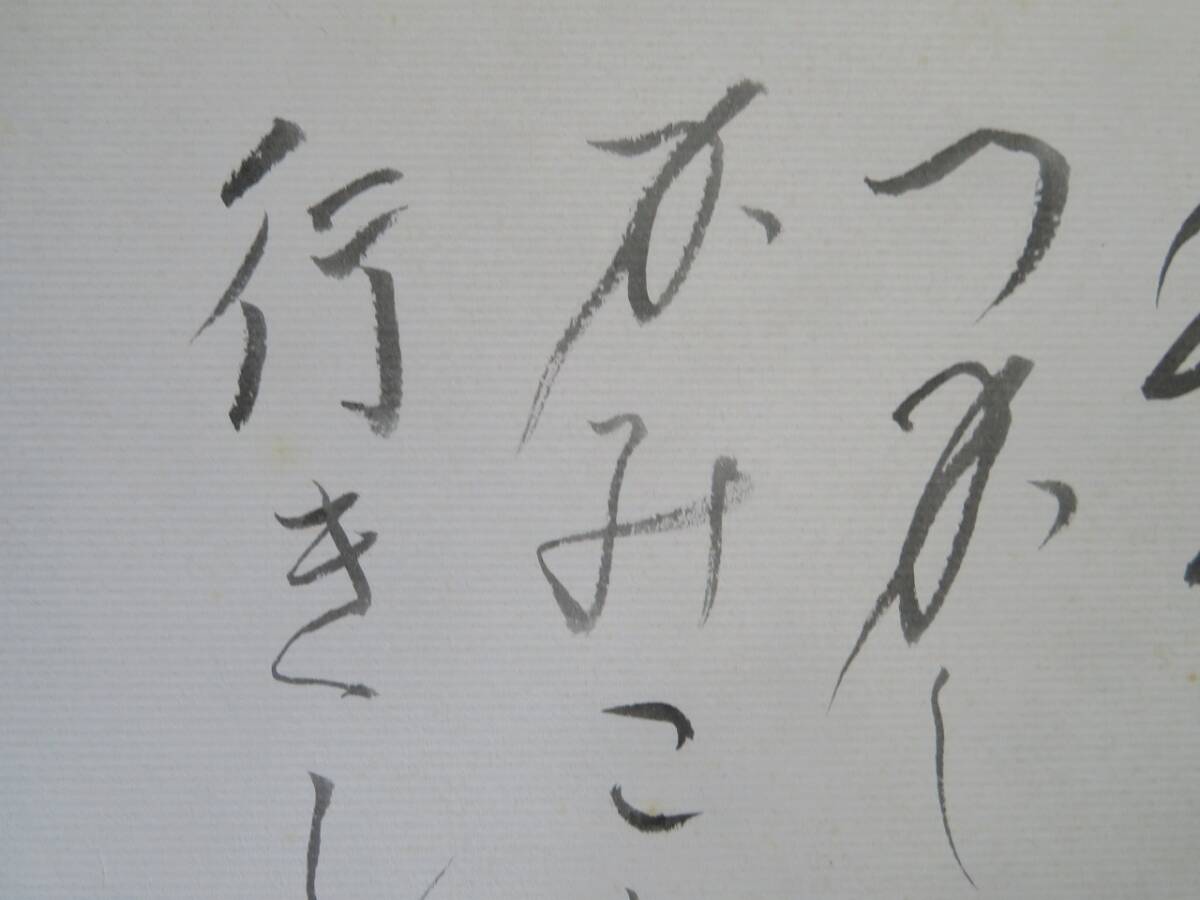 つかし
かみこ
行きし